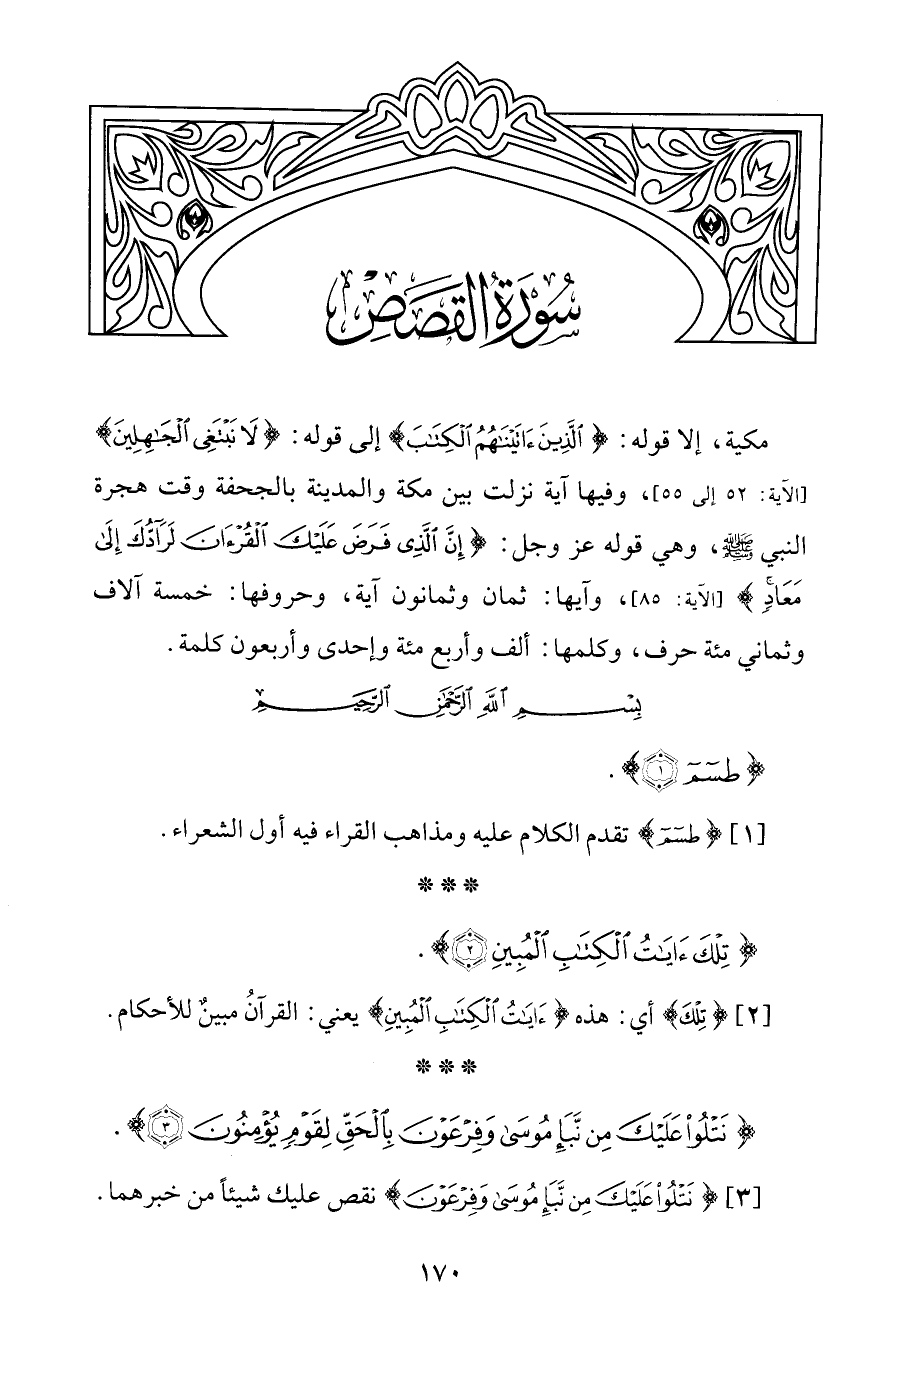 سُورَةُ القَصَصِ
مكية، إلا قوله: ﴿ ٱلَّذِينَ ءَاتَيْنَٰهُمُ ٱلْكِتَٰبَ﴾ إلى قوله: ﴿لَا نَبْتَغِى ٱلْجَٰهِلِينَ﴾
[الآية: ٥٢ إلى ٥٥]، وفيها آية نزلت بين مكة والمدينة بالجحفة وقت هجرة
النبي ﷺ، وهي قوله عز وجل: ﴿ إِنَّ ٱلَّذِى فَرَضَ عَلَيْكَ ٱلْقُرْءَانَ لَرَآدُّكَ إِلَىٰ
مَعَادٍ ﴾ [الآية: ٨٥]، وآيها: ثمان وثمانون آية، وحروفها: خمسة آلاف
وثماني مئة حرف، وكلمها: ألف وأربع مئة وإحدى وأربعون كلمة.
بِسْمِ ٱللَّهِ ٱلرَّحْمَٰنِ ٱلرَّحِيمِ
﴿ طسٓمٓ ١ ﴾.
[١] ﴿ طسٓمٓ ﴾ تقدم الكلام عليه ومذاهب القراء فيه أول الشعراء.
* * *
﴿ تِلْكَ ءَايَٰتُ ٱلْكِتَٰبِ ٱلْمُبِينِ ٢ ﴾.
[٢] ﴿ تِلْكَ﴾ أي: هذه ﴿ ءَايَٰتُ ٱلْكِتَٰبِ ٱلْمُبِينِ﴾ يعني: القرآنُ مبينٌ للأحكام.
* * *
﴿ نَتْلُوا۟ عَلَيْكَ مِن نَّبَإِ مُوسَىٰ وَفِرْعَوْنَ بِٱلْحَقِّ لِقَوْمٍ يُؤْمِنُونَ ٣ ﴾.
[٣] ﴿ نَتْلُوا۟ عَلَيْكَ مِن نَّبَإِ مُوسَىٰ وَفِرْعَوْنَ﴾ نقص عليك شيئاً من خبرهما.
١٧٠